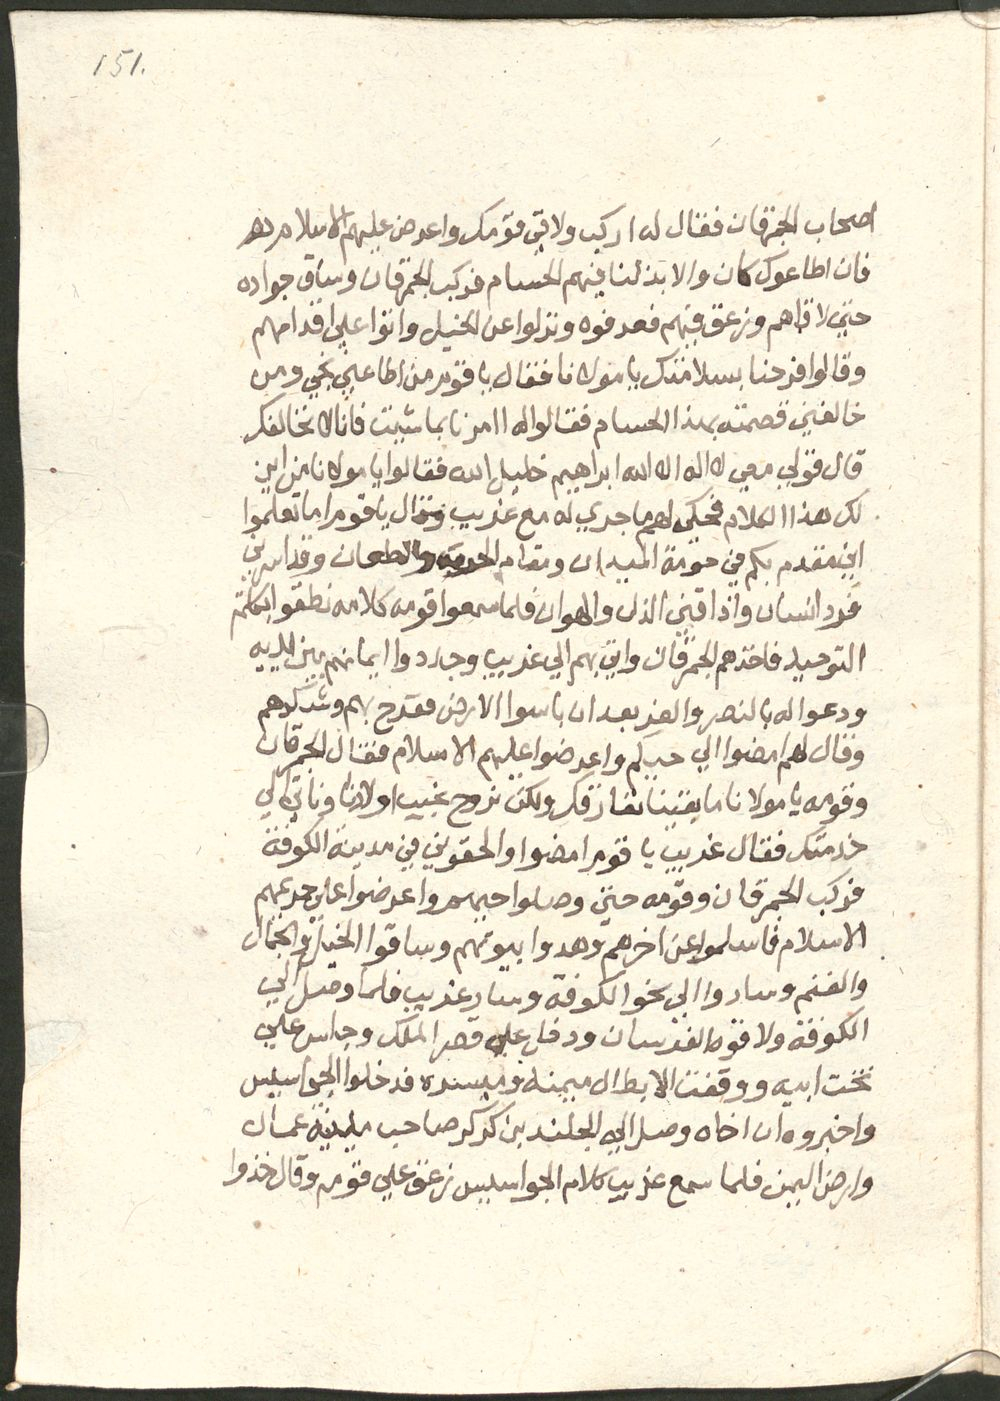 151.
اصحاب الجمرقان فقال له اركب ولاقي قومك واعرض عليهم الاسلام
فان اطاعوك كان والا بذلنا فيهم الحسام فركب الجمرقان وساق جواده
حتي لاقاهم وزعق فيهم فعرفوه ونزلوا عن الخيل واتوا علي اقدامهم
وقالوا فرحنا بسلامتك يا مولانا فقال يا قوم من اطاعني نجي ومن
خالفني قصمته بهذا الحسام فقالوا له اامرنا بما شيت فاننا لا نخالفك
قال قولي معي لا اله الا الله ابراهيم خليل الله فقالوا يا مولانا من اين
لك هذا الكلام فحكي لهم ما جري له مع غريب وقال يا قوم اما تعلموا
اني مقدم بكم في حومة الميدان ومقام الحرب والطعان وقد اسرني
فرد انسان واذاقني الذل والهوان فلما سمعوا قومه كلامه نطقوا بكلمة
التوحيد فاخذهم الجمرقان واتي بهم الي غريب وجددوا ايمانهم بين يديه
ودعوا له بالنصر والعز بعد ان باسوا الارض ففرح بهم وشكرهم
وقال لهم امضوا الي حيكم واعرضوا عليهم الاسلام فقال الجمرقان
وقومه يا مولانا ما بقينا نفارقك ولكن نروح نجيب اولادنا وناتي الي
خدمتك فقال غريب يا قوم امضوا والحقوني في مدينة الكوفة
فركب الجمرقان وقومه حتي وصلوا حيهم واعرضوا علي حريمهم
الاسلام فاسلموا عن اخرهم وهدوا بيوتهم وساقوا الخيل والجمال
والغنم وساروا الي نحو الكوفة وسار غريب فلما وصل الي
الكوفة ولاقوه الفرسان ودخل علي قصر الملك وجلس علي
تخت ابيه ووقفت الابطال ميمنة وميسرة فدخلوا الجواسيس
واخبروه ان اخاه وصل الي الجلند بن كركر صاحب مدينة عمان
وارض اليمن فلما سمع غريب كلام الجواسيس زعق علي قومه وقال خذوا